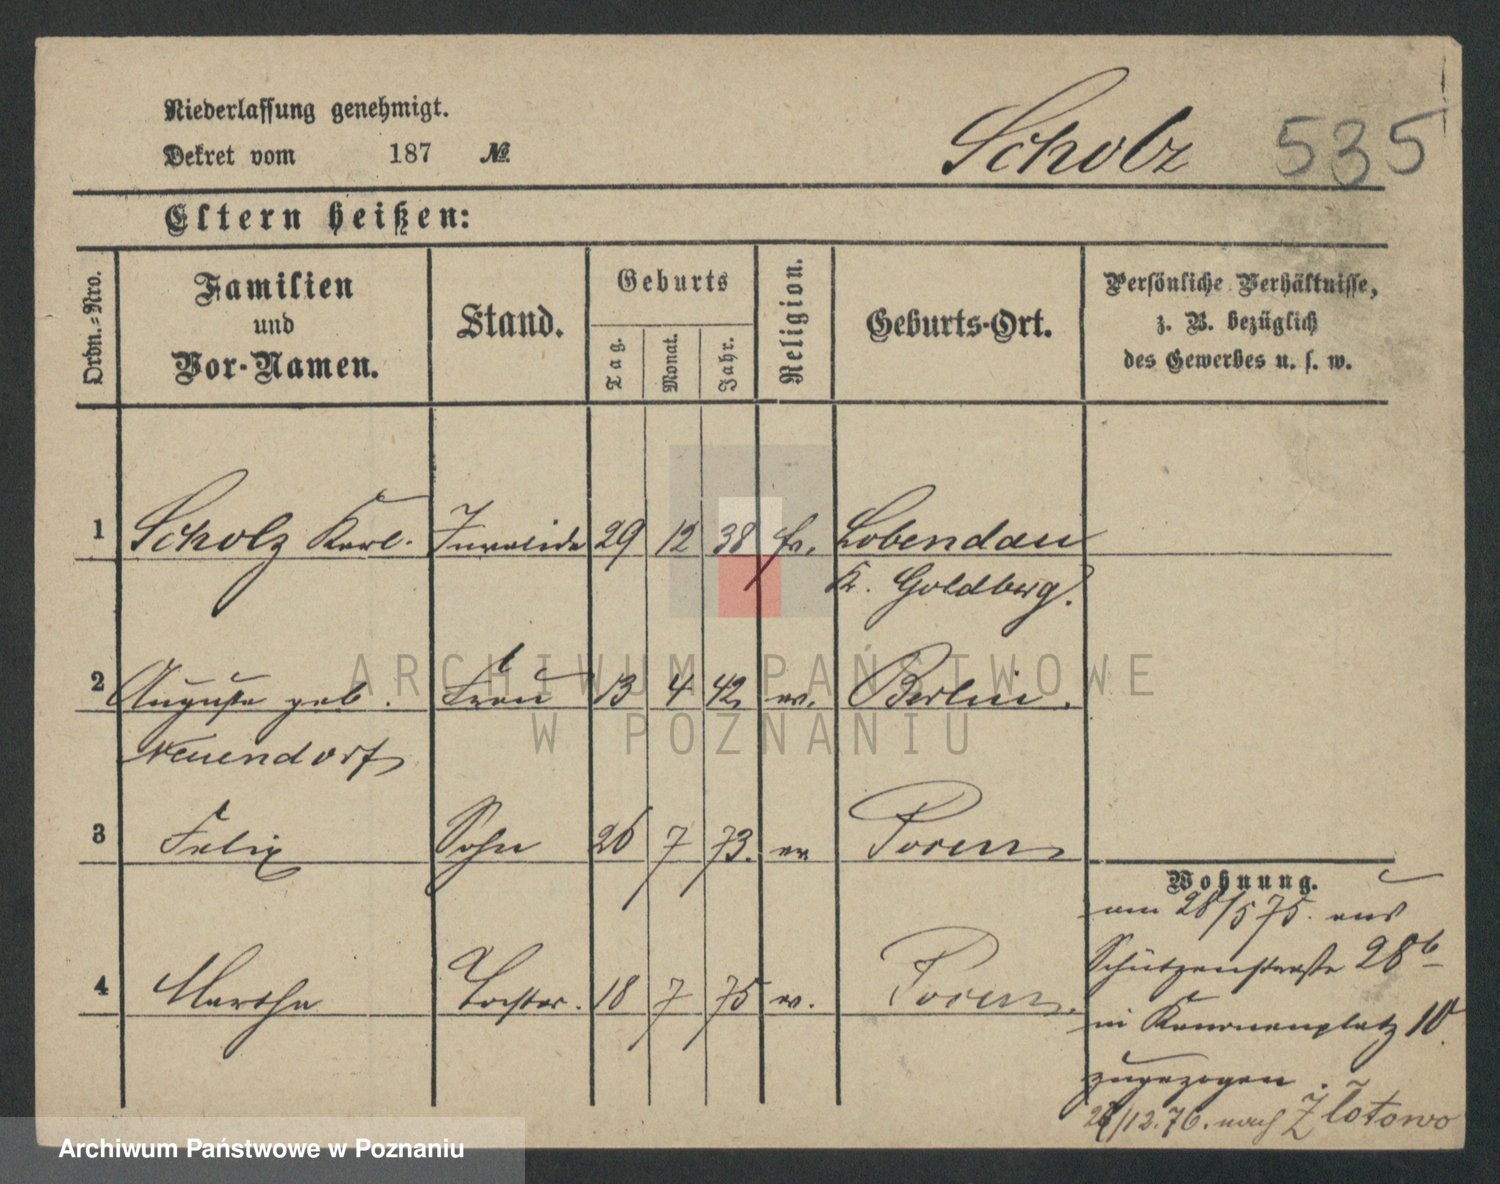 Niederlassung genehmigt.
Dekret vom 187 №
Scholz 535
Eltern heißen:
Ordn.-Nro.
Familien und Vor-Namen.
Stand.
Geburts
Tag.
Monat.
Jahr.
Religion.
Geburts-Ort.
Persönliche Verhältnisse,
z. B. bezüglich
des Gewerbes u. s. w.
1 Scholz Karl. Invalide 29 12 38 Lobendau
Kr. Goldberg.
2 Auguste geb. Frau 13 4 42 ev. Berlin.
Neuendorf
3 Felix Sohn 26 7 73. ev Posen
Wohnung.
am 28/5 75. aus
Schützenstraße 28b
4 Martha Tochter. 18 7 75 ev. Posen.
in Kanonenplatz 10
zugezogen.
/12.76. nach Złotowo
ARCHIWUM PAŃSTWOWE
W POZNANIU
Archiwum Państwowe w Poznaniu